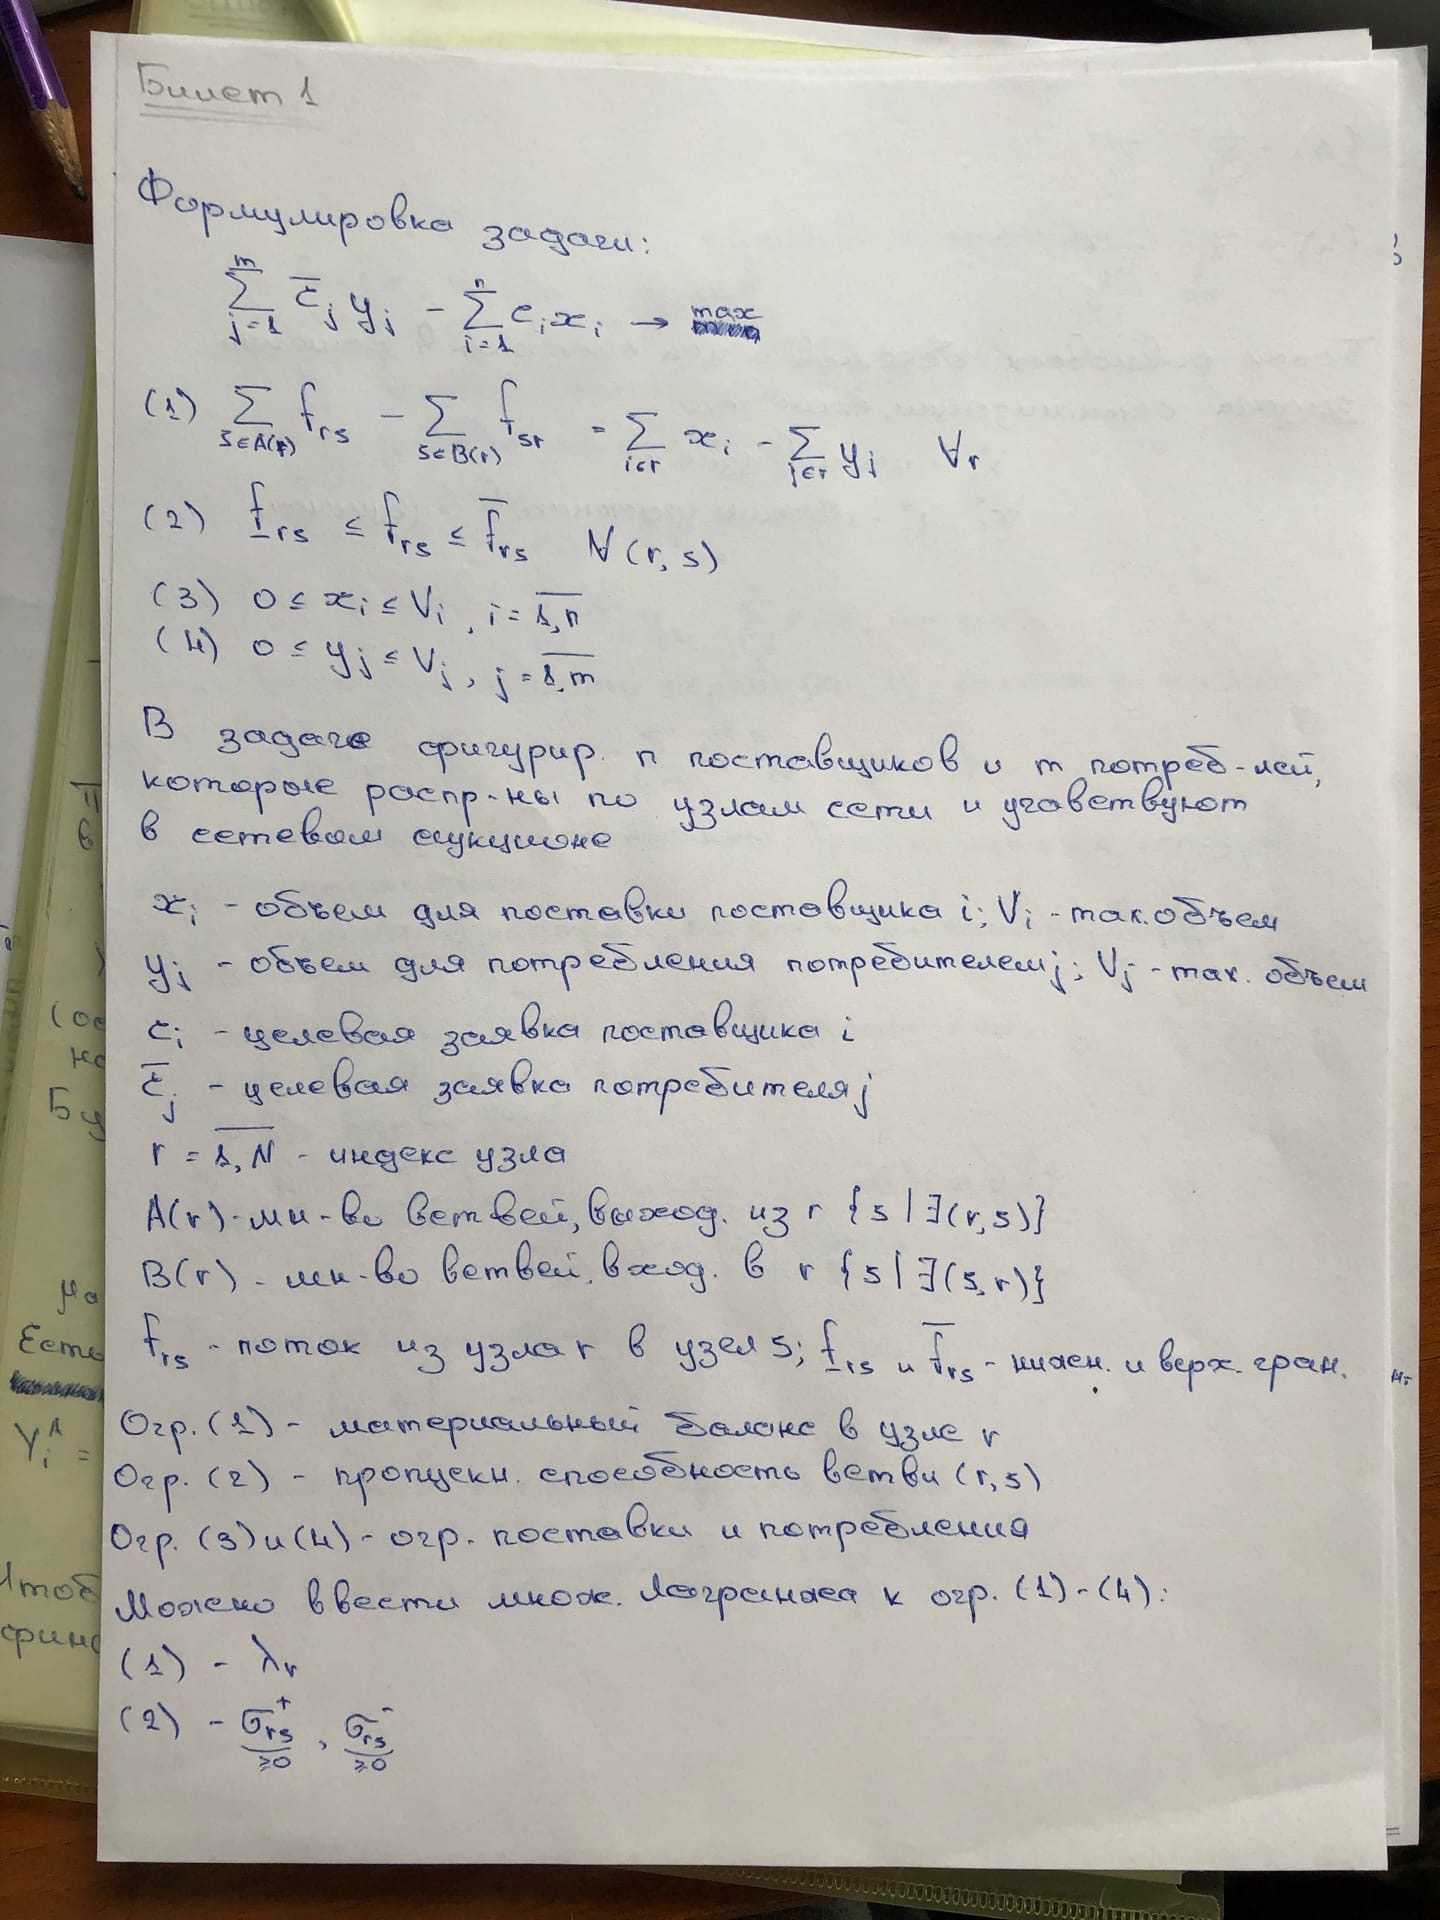 Билет 1
Формулировка задачи:
∑_{j=1}^{m} c̅_j y_j - ∑_{i=1}^{n} c_i x_i → max
(1) ∑_{s∈A(r)} f_rs - ∑_{s∈B(r)} f_sr = ∑_{i∈r} x_i - ∑_{j∈r} y_j ∀r
(2) f̲_rs ≤ f_rs ≤ f̅_rs ∀(r,s)
(3) 0 ≤ x_i ≤ V_i, i = \overline{1,n}
(4) 0 ≤ y_j ≤ V_j, j = \overline{1,m}
В задаче фигурир. n поставщиков и m потреб-лей,
которые распр-ны по узлам сети и участвуют
в сетевом аукционе
x_i - объем для поставки поставщика i; V_i - max. объем
y_j - объем для потребления потребителем j; V_j - max. объем
c_i - целевая заявка поставщика i
c̅_j - целевая заявка потребителя j
r = \overline{1,N} - индекс узла
A(r) - мн-во ветвей, выход. из r {s | ∃(r,s)}
B(r) - мн-во ветвей, вход. в r {s | ∃(s,r)}
f_rs - поток из узла r в узел s; f̲_rs и f̅_rs - нижн. и верх. гран.
Огр. (1) - материальный баланс в узле r
Огр. (2) - пропускн. способность ветви (r,s)
Огр. (3) и (4) - огр. поставки и потребления
Можно ввести множ. Лагранжа к огр. (1)-(4):
(1) - λ_r
(2) - σ_rs^+ ≥0, σ_rs^- ≥0
Есть
Y_i^A =